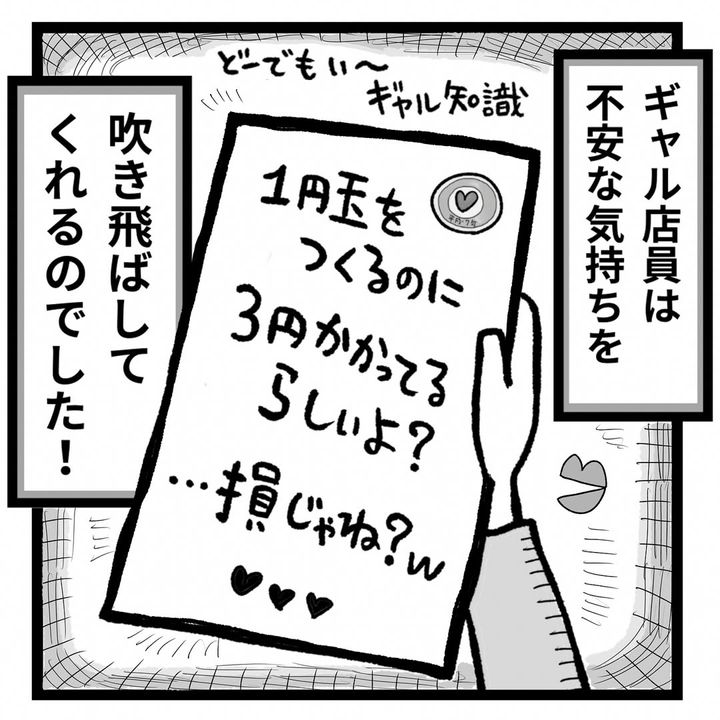 ギャル店員は
不安な気持ちを
どーでもい〜
ギャル知識
1円玉を
つくるのに
3円かかってる
らしいよ?
…損じゃね?w
平成7年
吹き飛ばして
くれるのでした!